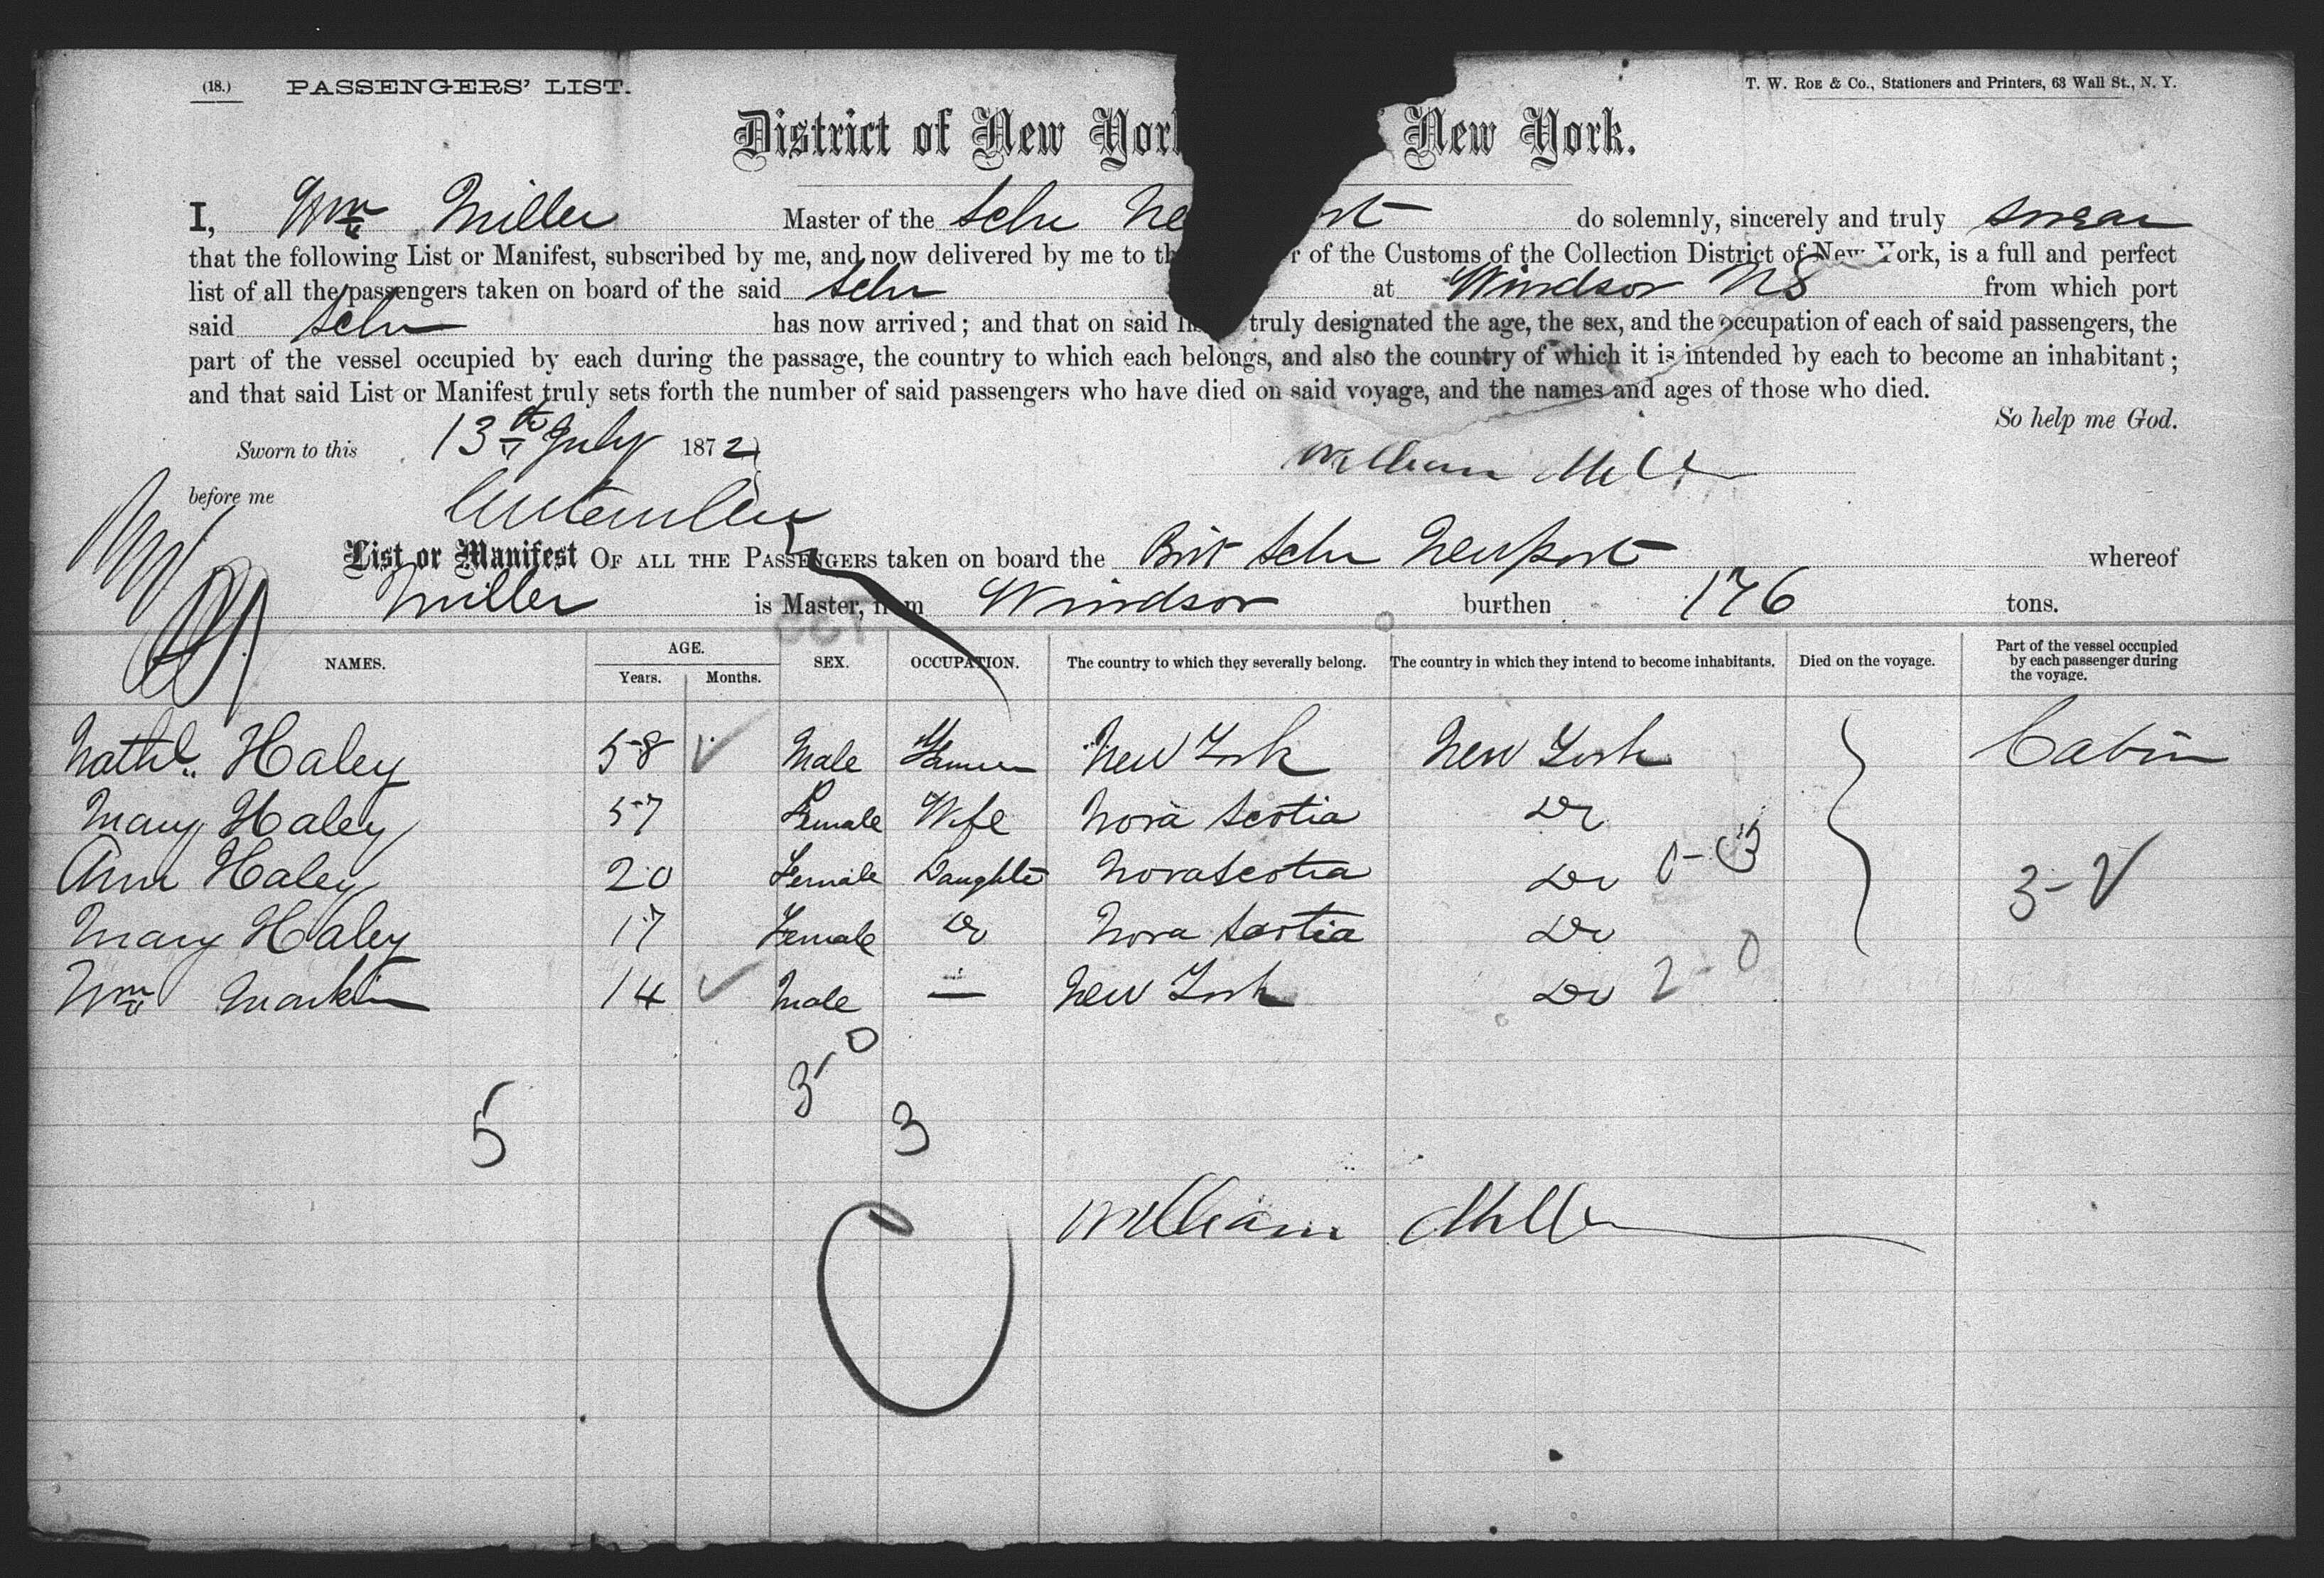 (18.) PASSENGERS' LIST. T. W. ROE & Co., Stationers and Printers, 63 Wall St., N. Y.
District of New York New York.
I, Wm Miller Master of the Schr Ne rt do solemnly, sincerely and truly swear
that the following List or Manifest, subscribed by me, and now delivered by me to th r of the Customs of the Collection District of New York, is a full and perfect
list of all the passengers taken on board of the said Schr at Windsor NS from which port
said Schr has now arrived; and that on said truly designated the age, the sex, and the occupation of each of said passengers, the
part of the vessel occupied by each during the passage, the country to which each belongs, and also the country of which it is intended by each to become an inhabitant;
and that said List or Manifest truly sets forth the number of said passengers who have died on said voyage, and the names and ages of those who died.
So help me God.
Sworn to this 13th July 1872
William Miller
before me
List or Manifest OF ALL THE PASSENGERS taken on board the Brit Schr Newport whereof
Miller is Master, from Windsor burthen 176 tons.
NAMES. AGE. Years. Months. SEX. OCCUPATION. The country to which they severally belong. The country in which they intend to become inhabitants. Died on the voyage. Part of the vessel occupied by each passenger during the voyage.
Nathl. Haley 58 Male Farmer New York New York Cabin
Mary Haley 57 Female Wife Nova Scotia Do
Ann Haley 20 Female Daughter Nova Scotia Do 0-3 3-2
Mary Haley 17 Female Do Nova Scotia Do
Wm 14 Male — New York Do 2-0
5 3
William Miller